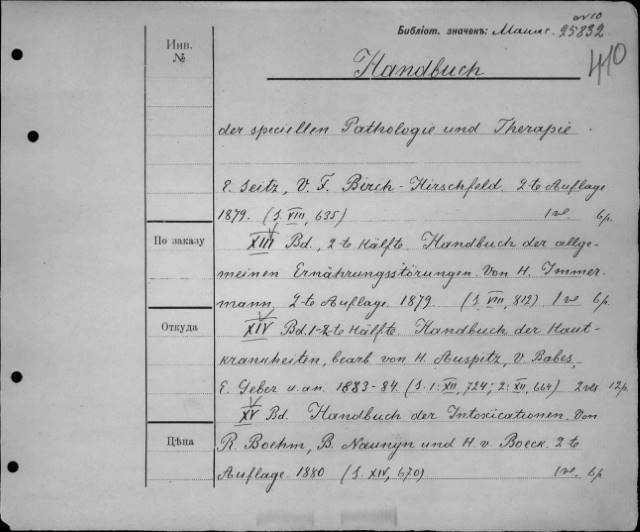 Библіот. значекъ: Машис. 25832
410
Инв.
№
Handbuch
der speciellen Pathologie und Therapie.
E. Seitz, V. F. Birch-Hirschfeld. 2-te Auflage
1879. (S. VIII, 635) 1 ve. 6 p.
По заказу
XIII Bd., 2-te Hälfte. Handbuch der allge-
meinen Ernährungsstörungen. Von H. Immer-
mann, 2-te Auflage. 1879. (S. VIII, 812) 1 ve 6 p.
Откуда
XIV Bd. 1-2-te Hälfte. Handbuch der Haut-
krankheiten, bearb. von H. Auspitz, V. Babes,
E. Geber u. an. 1883-84. (S. 1: XII, 724; 2: XII, 664) 2 vls. 12 p.
XV Bd. Handbuch der Intoxicationen. Von
Цѣна
R. Boehm, B. Naunyn und H. v. Boeck. 2-te
Auflage. 1880 (S. XIV, 670) 1 ve. 6 p.